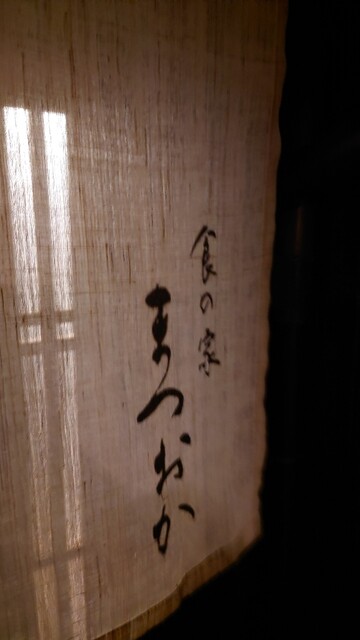 食の家
まつおか